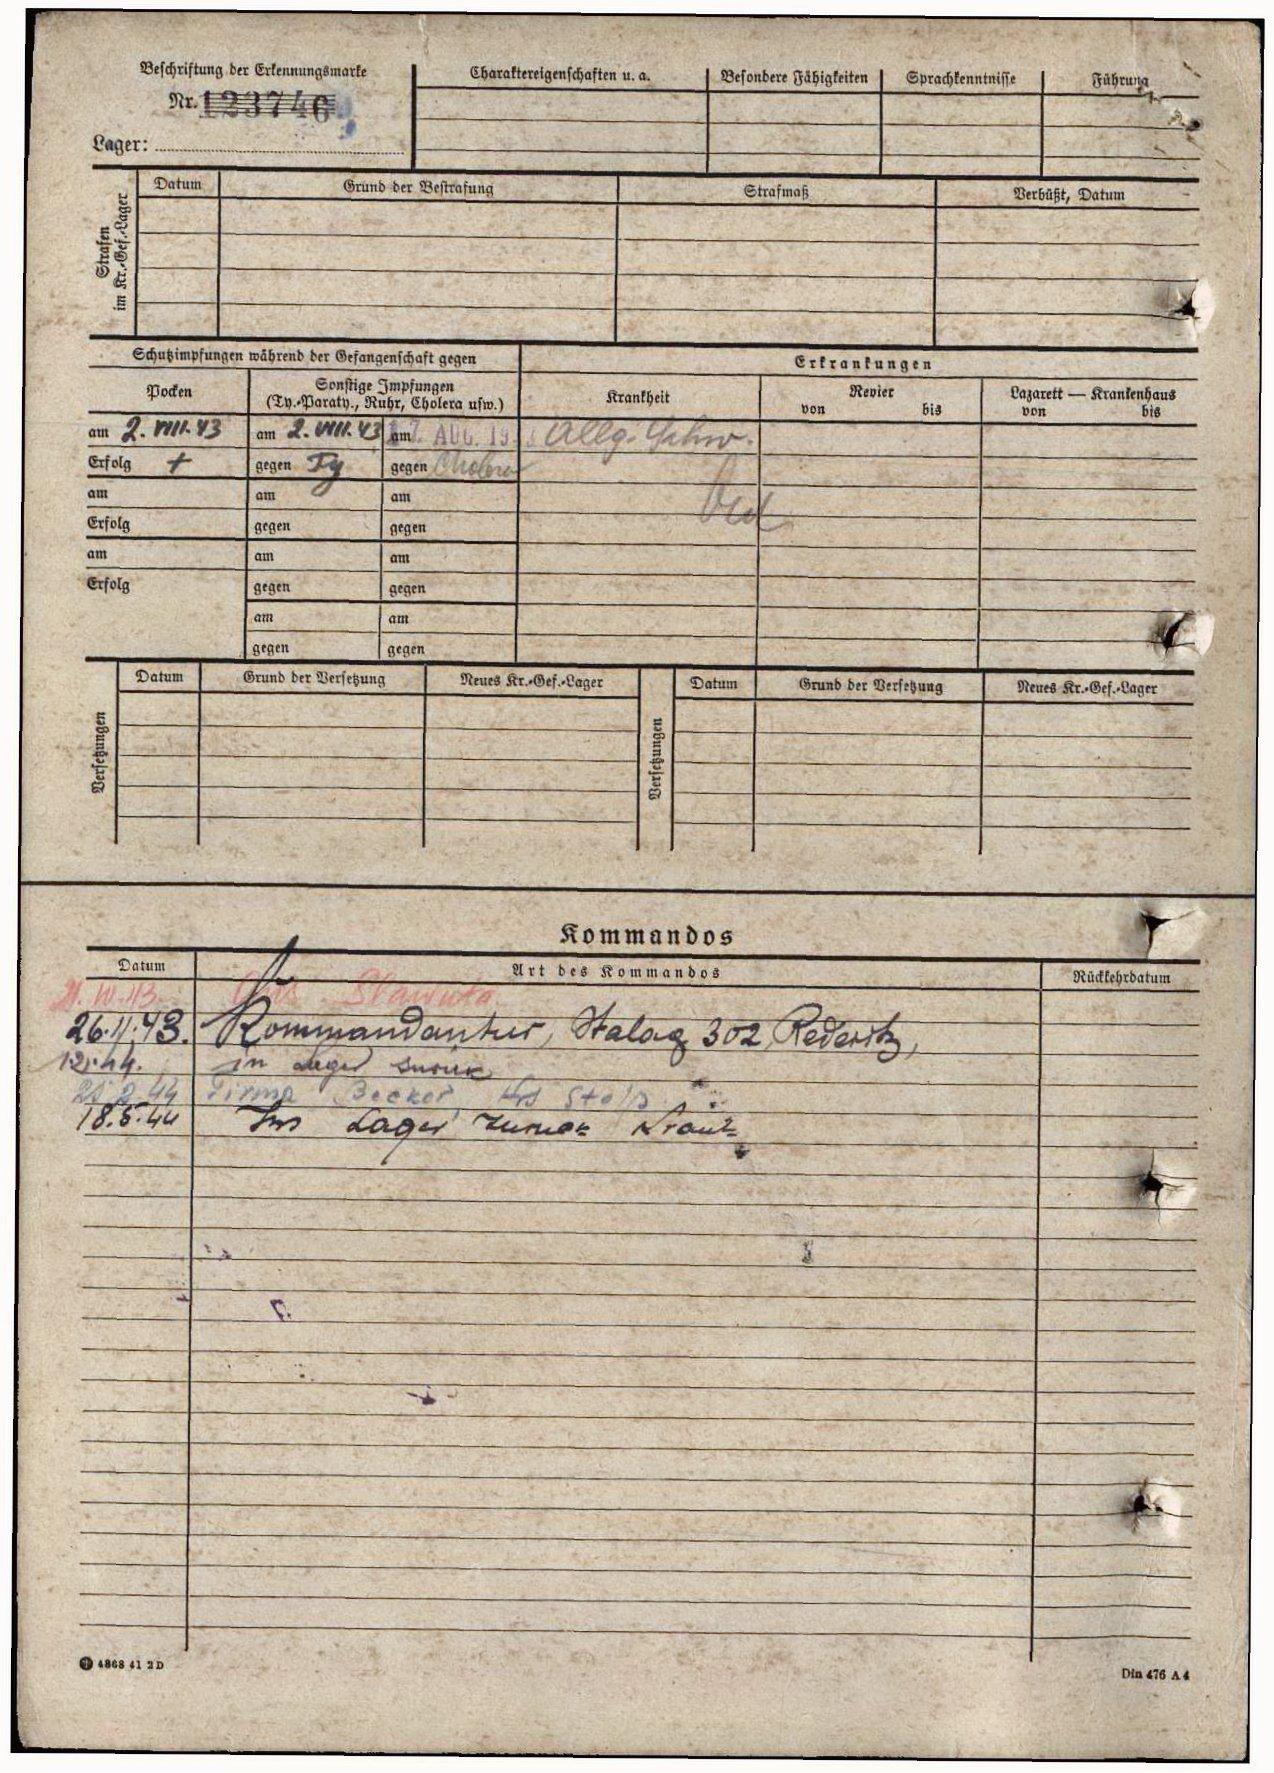 Beschriftung der Erkennungsmarke
Nr. 123746
Lager:
Charaktereigenschaften u. a.
Besondere Fähigkeiten
Sprachkenntnisse
Führung
Strafen im Kr.-Gef.-Lager
Datum
Grund der Bestrafung
Strafmaß
Verbüßt, Datum
Schutzimpfungen während der Gefangenschaft gegen
Erkrankungen
Pocken
Sonstige Impfungen
(Ty.-Paraty., Ruhr, Cholera usw.)
Krankheit
Revier
von bis
Lazarett — Krankenhaus
von bis
am 2. VIII. 43 am 2. VIII. 43 am AUG. Allg. Schw.
Erfolg + gegen Ty gegen Cholera
am am am
Erfolg gegen gegen
am am am
Erfolg gegen gegen
am am
gegen gegen
Versetzungen
Datum
Grund der Versetzung
Neues Kr.-Gef.-Lager
Versetzungen
Datum
Grund der Versetzung
Neues Kr.-Gef.-Lager
Kommandos
Datum Art des Kommandos Rückkehrdatum
Slawuta
26.11.43. Kommandantur, Stalag 302, Rederitz,
in Lager zurück
Firma Becker, Stolp
18.5.44 Ins Lager zurück krank
4868 41 2 D
Din 476 A 4